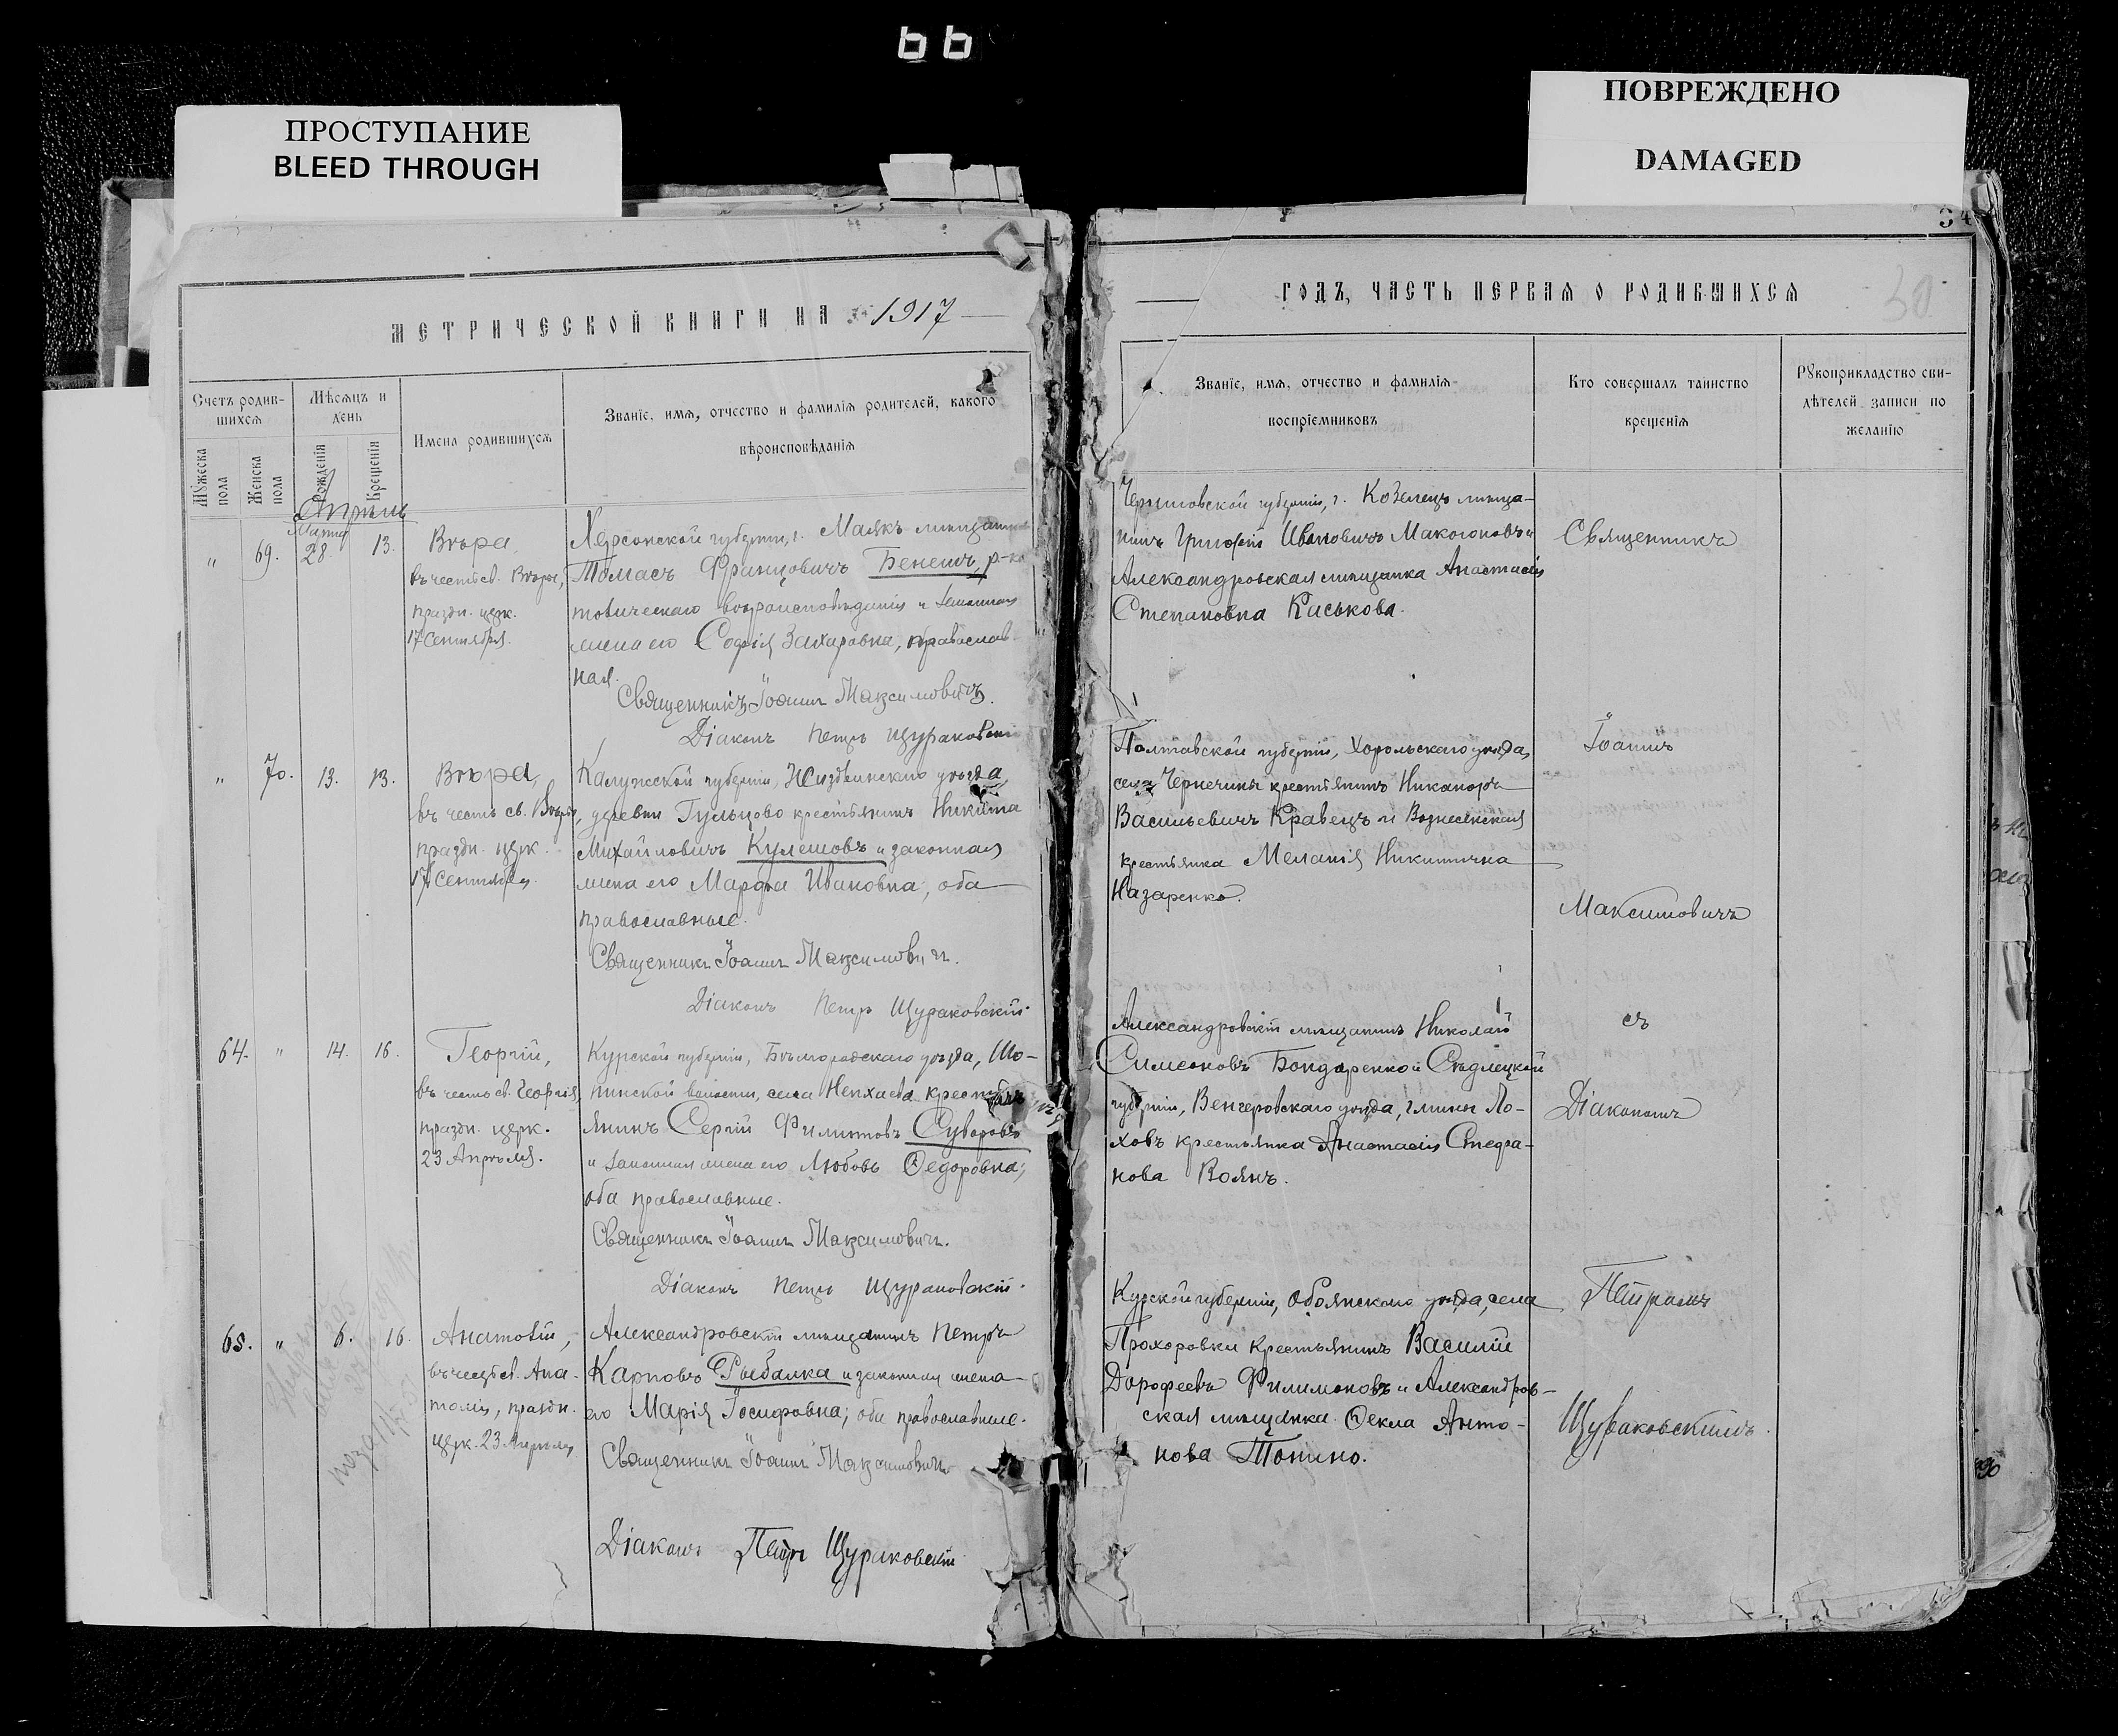 66
ПРОСТУПАНИЕ
BLEED THROUGH
ПОВРЕЖДЕНО
DAMAGED
34
МЕТРИЧЕСКОЙ КНИГИ НА 1917
Счетъ родив-
шихся
Мужеска пола
Женска пола
Мѣсяцъ и
день
Рожденія
Крещенія
Имена родившихся
Званіе, имя, отчество и фамилія родителей, какого
вѣроисповѣданія
Апрѣль
" 69. Марта 28. 13.
Вѣра,
въ честь св. Вѣры,
праздн. церк.
17 Сентября.
Херсонской губерніи, г. Маякъ мѣщанинъ
Томасъ Францовичъ Бенешъ, р.-ка
толическаго вѣроисповѣданія и законная
жена его Софія Захаровна, православ-
ная.
Священникъ Іоаннъ Максимовичъ.
Діаконъ Петръ Щураковскій
" 70. 13. 13.
Вѣра,
въ честь св. Вѣры,
праздн. церк.
17 Сентября.
Калужской губерніи, Жиздринскаго уѣзда,
деревни Гульцово крестьянинъ Никита
Михайловичъ Кулешовъ и законная
жена его Марфа Ивановна, оба
православные.
Священникъ Іоаннъ Максимовичъ.
Діаконъ Петръ Щураковскій.
64. " 14. 16.
Георгій,
въ честь св. Георгія,
праздн. церк.
23 Апрѣля.
Курской губерніи, Бѣлгородскаго уѣзда, Шо-
пинской волости, села Непхаева крестья-
янинъ Сергій Филиповъ Суворовъ
и законная жена его Любовь Ѳедоровна;
оба православные.
Священникъ Іоаннъ Максимовичъ.
Діаконъ Петръ Щураковскій.
65. " 6. 16.
Анатолій,
въ честь св. Ана-
толія, праздн.
церк. 23 Апрѣля
Александровскій мѣщанинъ Петръ
Карповъ Рыбалка и законная жена
его Марія Іосифовна; оба православные.
Священникъ Іоаннъ Максимовичъ
Діаконъ Петръ Щураковскій
ГОДЪ, ЧАСТЬ ПЕРВАЯ О РОДИВШИХСЯ
30
Званіе, имя, отчество и фамилія
воспріемниковъ
Кто совершалъ таинство
крещенія
Рукоприкладство сви-
дѣтелей записи по
желанію
Черниговской губерніи, г. Козелецъ мѣща-
нинъ Григорій Ивановичъ Макогоновъ и
Александровская мѣщанка Анастасія
Степановна Каськова.
Полтавской губерніи, Хорольскаго уѣзда,
села Чернечины крестьянинъ Никаноръ
Васильевичъ Кравецъ и Вознесенская
крестьянка Меланія Никитична
Назаренко.
Александровскій мѣщанинъ Николай
Симеоновъ Бондаренко и Сѣдлецкой
губерніи, Венгеровскаго уѣзда, гмины Ло-
ховъ крестьянка Анастасія Стефа-
нова Воянъ.
Курской губерніи, Обоянскаго уѣзда, села
Прохоровки крестьянинъ Василій
Дорофеевъ Филимоновъ и Александров-
ская мѣщанка Ѳекла Анто-
нова Топино.
Священникъ
Іоаннъ
Максимовичъ
съ
Діакономъ
Петромъ
Щураковскимъ.